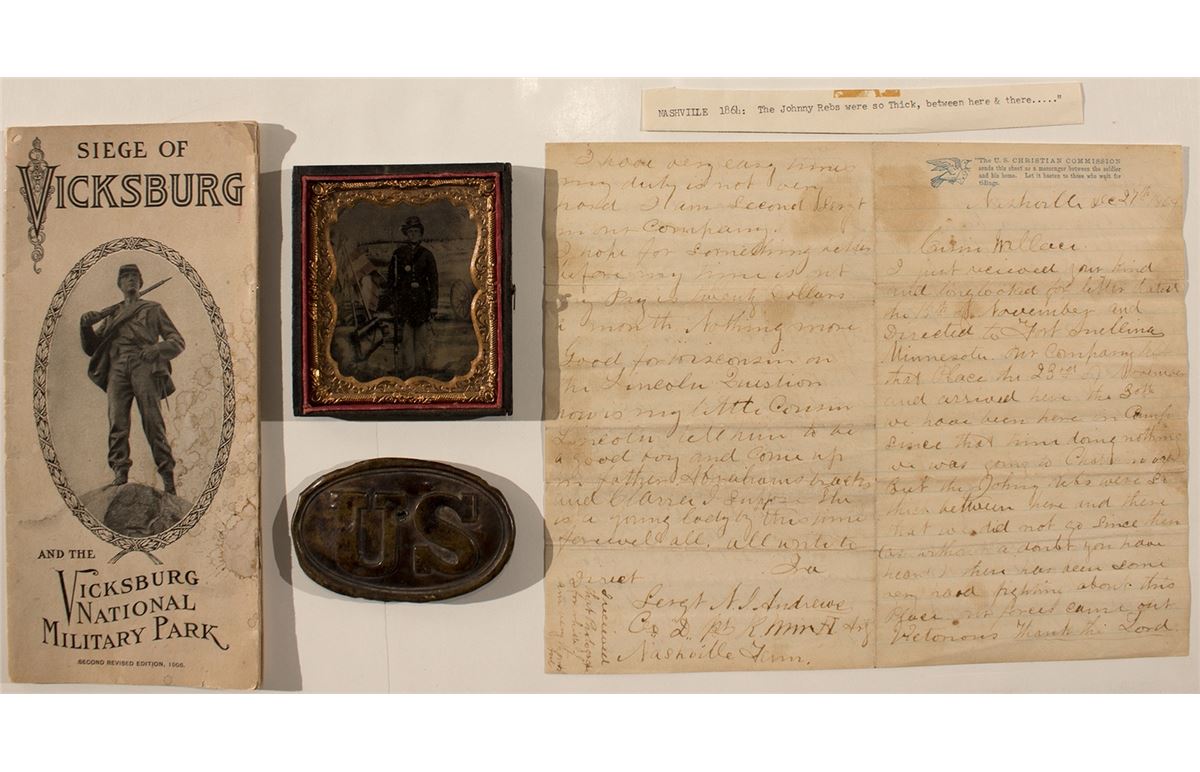 SIEGE OF
VICKSBURG
AND THE
VICKSBURG
NATIONAL
MILITARY PARK
SECOND REVISED EDITION, 1906.
US
NASHVILLE 1864: The Johnny Rebs were so Thick, between here & there....."
I have very easy time
my duty is not very
hard I am Second Sergt
in our Company.
I hope for something better
before my time is out
my Pay is twenty Dollars
a month Nothing more
Good for Wisconsin on
the Lincoln Question
how is my little Cousin
Lincoln tell him to be
a good boy and come up
in father Abrahams tracks
and I suppose She
is a young lady by this time
farewell all. all write to
Ira
Direct
Sergt N. I. Andrews
Co D 1st R Minn H Art
Nashville Tenn.
"The U. S. CHRISTIAN COMMISSION
sends this sheet as a messenger between the soldier
and his home. Let it hasten to those who wait for
tidings.
Nashville Dec 27th 1864
Cousin Wallace
I just received your kind
and long looked for letter dated
the November and
Directed to Fort Snelling
Minnesota our Company left
that Place the 23rd of November
and arrived here the 30th
we have been here in Camp
Since that time doing nothing
we was going to
But the Johny Rebs were So
thick between here and there
that we did not go Since then
as without a doubt you have
heard there has been some
very hard fighting about this
Place our forces came out
Victorious Thank the Lord